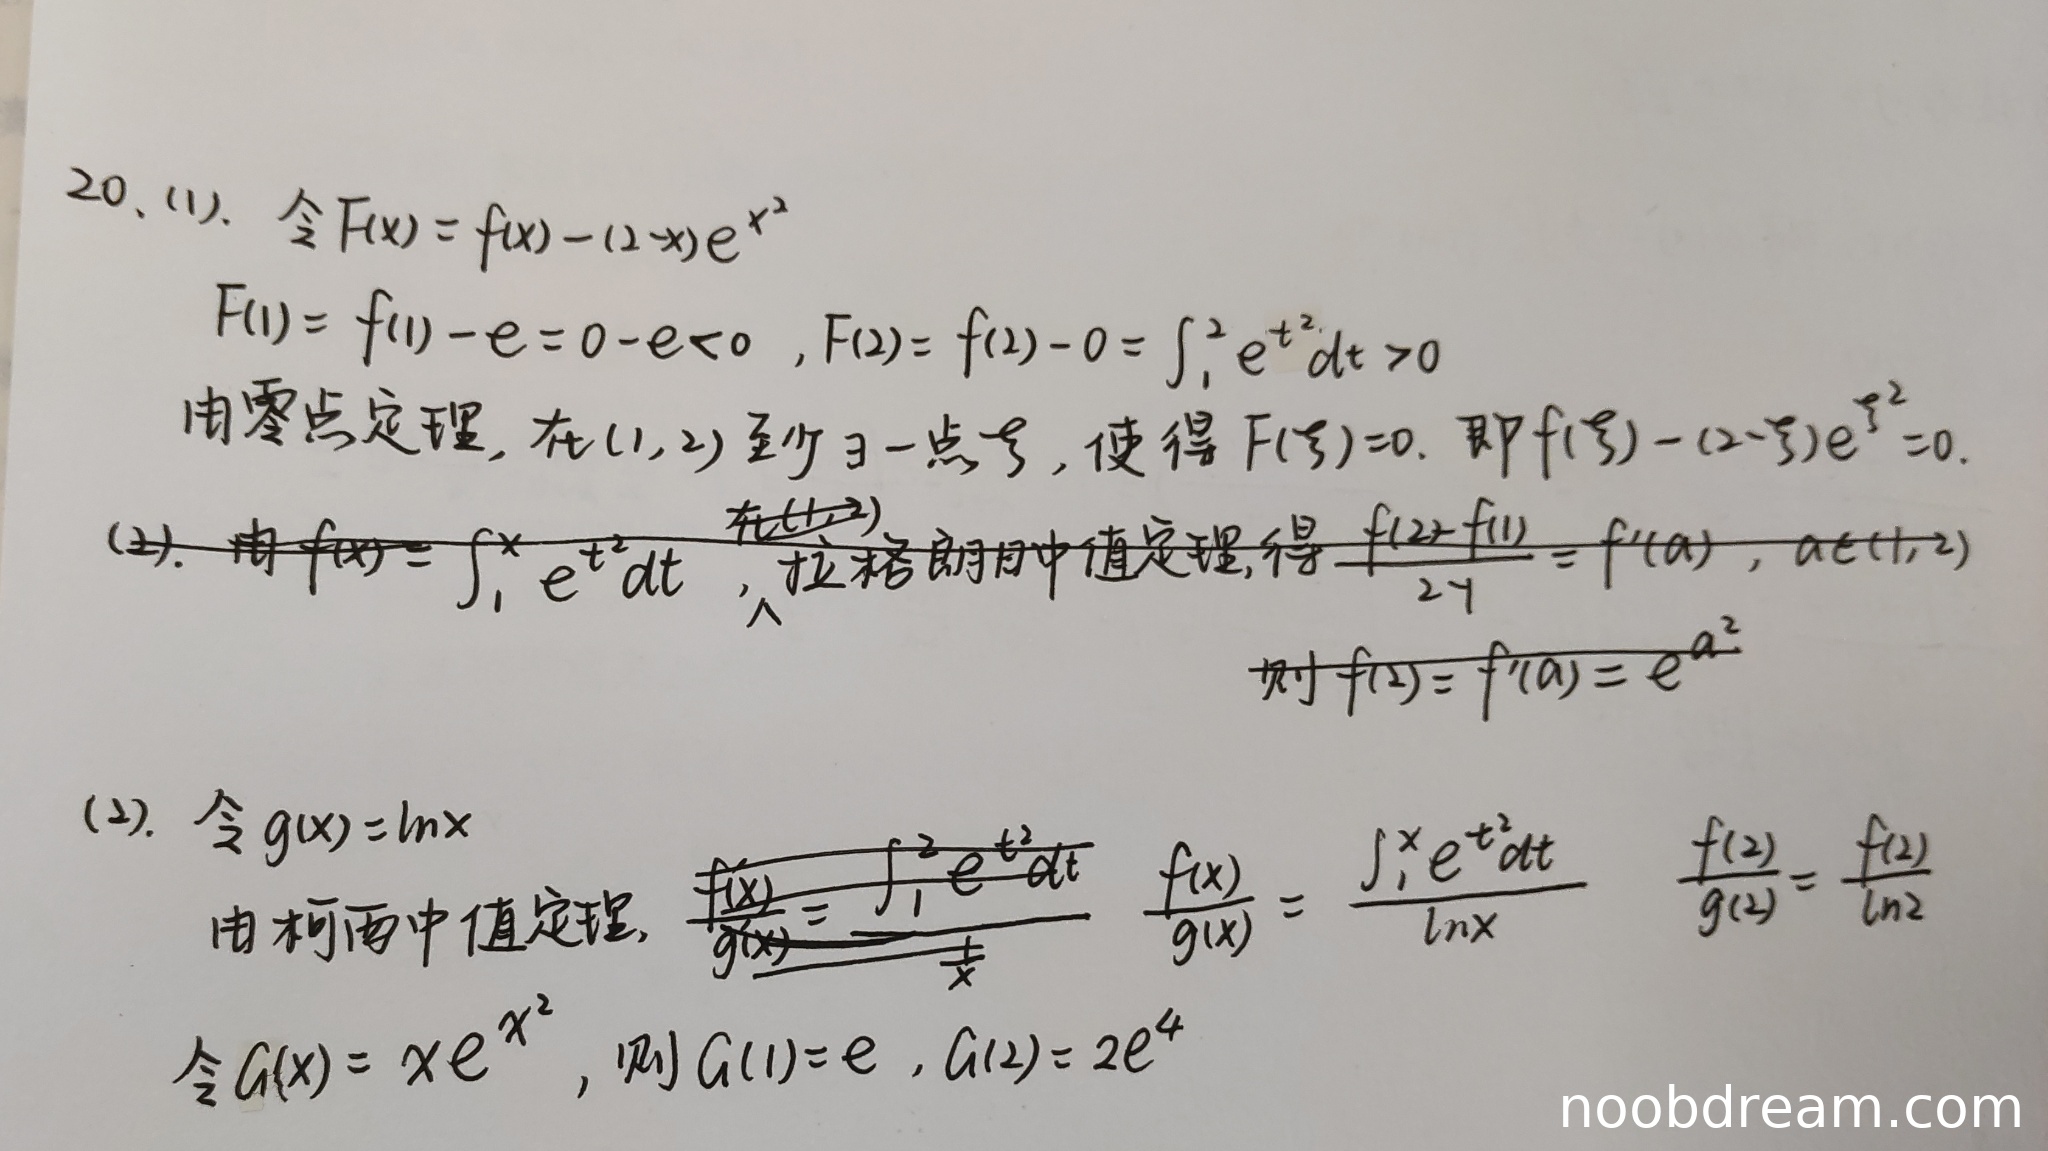 20、(1). 令F(x) = f(x) - (2-x)e^{x^2}
F(1) = f(1) - e = 0 - e < 0 , F(2) = f(2) - 0 = ∫_1^2 e^{t^2}dt > 0
由零点定理, 在(1,2)至少∃一点ξ, 使得 F(ξ)=0. 即f(ξ) - (2-ξ)e^{ξ^2} = 0.
(2). 由 f(x) = ∫_1^x e^{t^2}dt , 在(1,2) 拉格朗日中值定理,得 \frac{f(2)-f(1)}{2-1} = f'(a) , a∈(1,2)
则 f(2) = f'(a) = e^{a^2}
(2). 令 g(x) = lnx
由柯西中值定理, \frac{f(x)}{g(x)} = \frac{∫_1^2 e^{t^2}dt}{\frac{1}{x}} \frac{f(x)}{g(x)} = \frac{∫_1^x e^{t^2}dt}{lnx} \frac{f(2)}{g(2)} = \frac{f(2)}{ln2}
令G(x) = xe^{x^2} , 则 G(1) = e , G(2) = 2e^4
noobdream.com